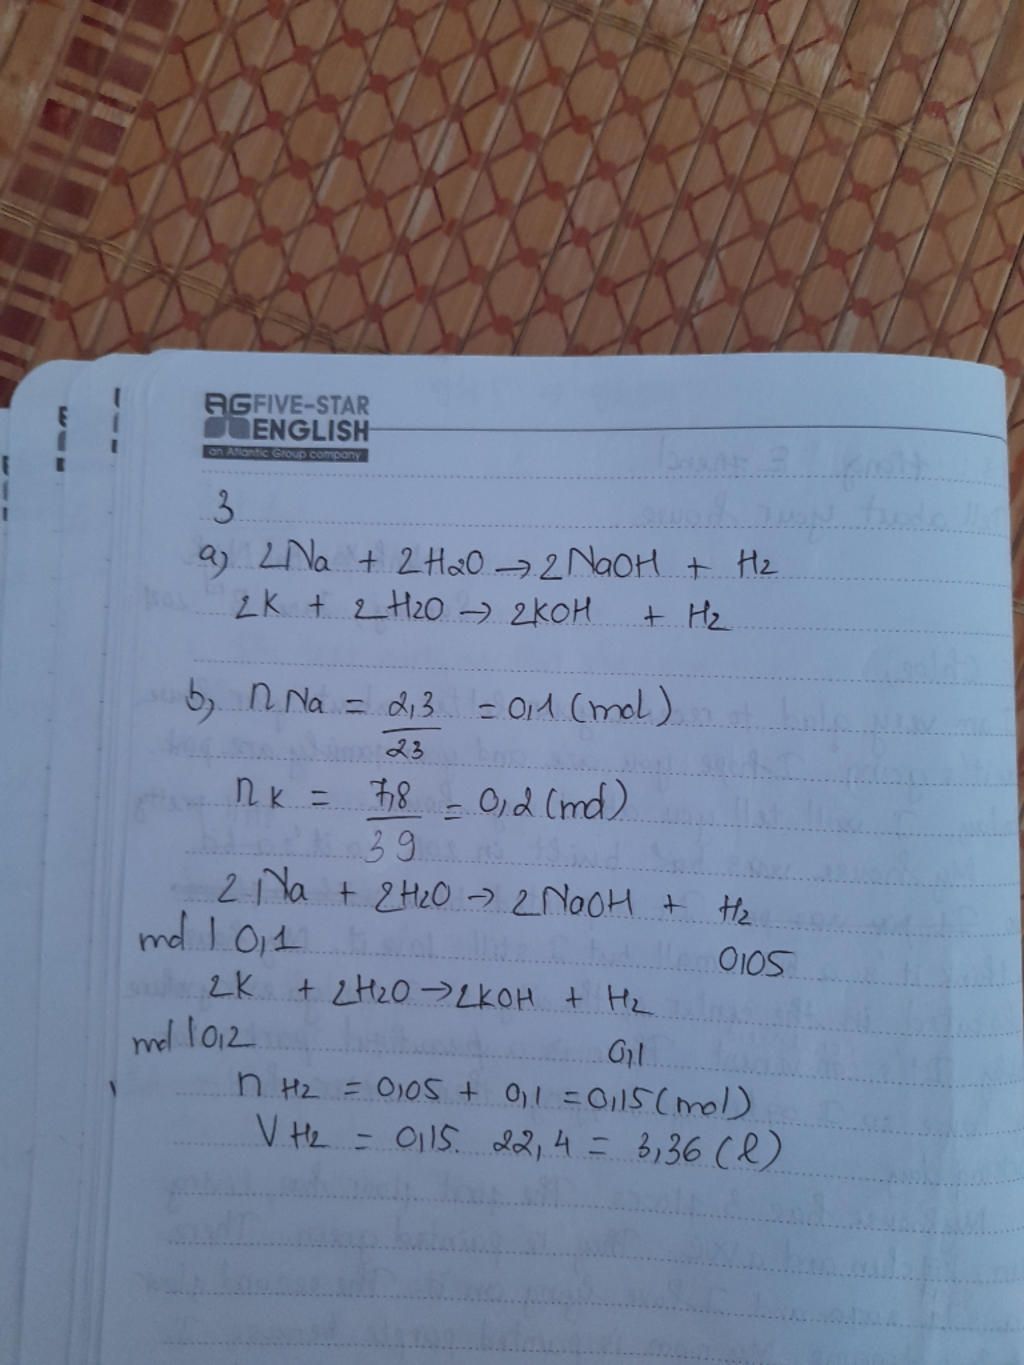 AG FIVE-STAR
ENGLISH
an Atlantic Group company
3
a) 2Na + 2H2O → 2NaOH + H2
2K + 2H2O → 2KOH + H2
b) nNa = 2,3/23 = 0,1 (mol)
nK = 7,8/39 = 0,2 (mol)
2Na + 2H2O → 2NaOH + H2
mol | 0,1 0,05
2K + 2H2O → 2KOH + H2
mol | 0,2 0,1
nH2 = 0,05 + 0,1 = 0,15 (mol)
VH2 = 0,15. 22,4 = 3,36 (l)